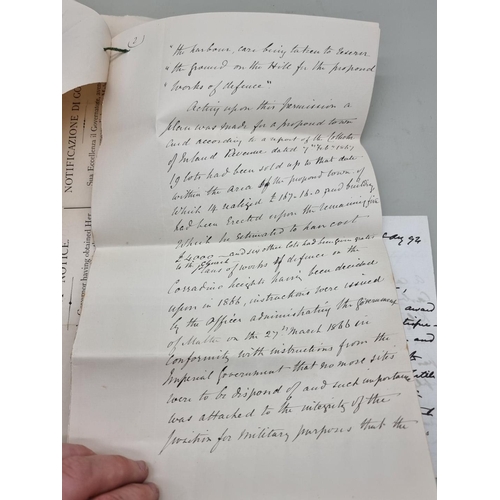 (2)
"the harbour, care being taken to reserve
"the ground on the Hill for the proposed
"works of defence"
Acting upon this permission a
plan was made for a proposed town
and according to a report of the Collector
of Inland Revenue dated
19 lots had been sold up to that date
within the area of the proposed town of
which 14 realized £167.14.0 and buildings
had been Erected upon the remaining five
which he estimated to have cost
£4000 — and seven other lots had been given
to the Church.
Plans of works of defence on the
Corradino heights having been decided
upon in 1866, instructions were issued
by the Officer administering the Government
of Malta on the 27th March 1866 in
Conformity with instructions from the
Imperial Government that no more sites
were to be disposed of and such importance
was attached to the integrity of the
position for military purposes that the
NOTIFICAZIONE DI GO
Sua Eccellenza il Governatore
NOTICE
Governor having obtained Her
award
and